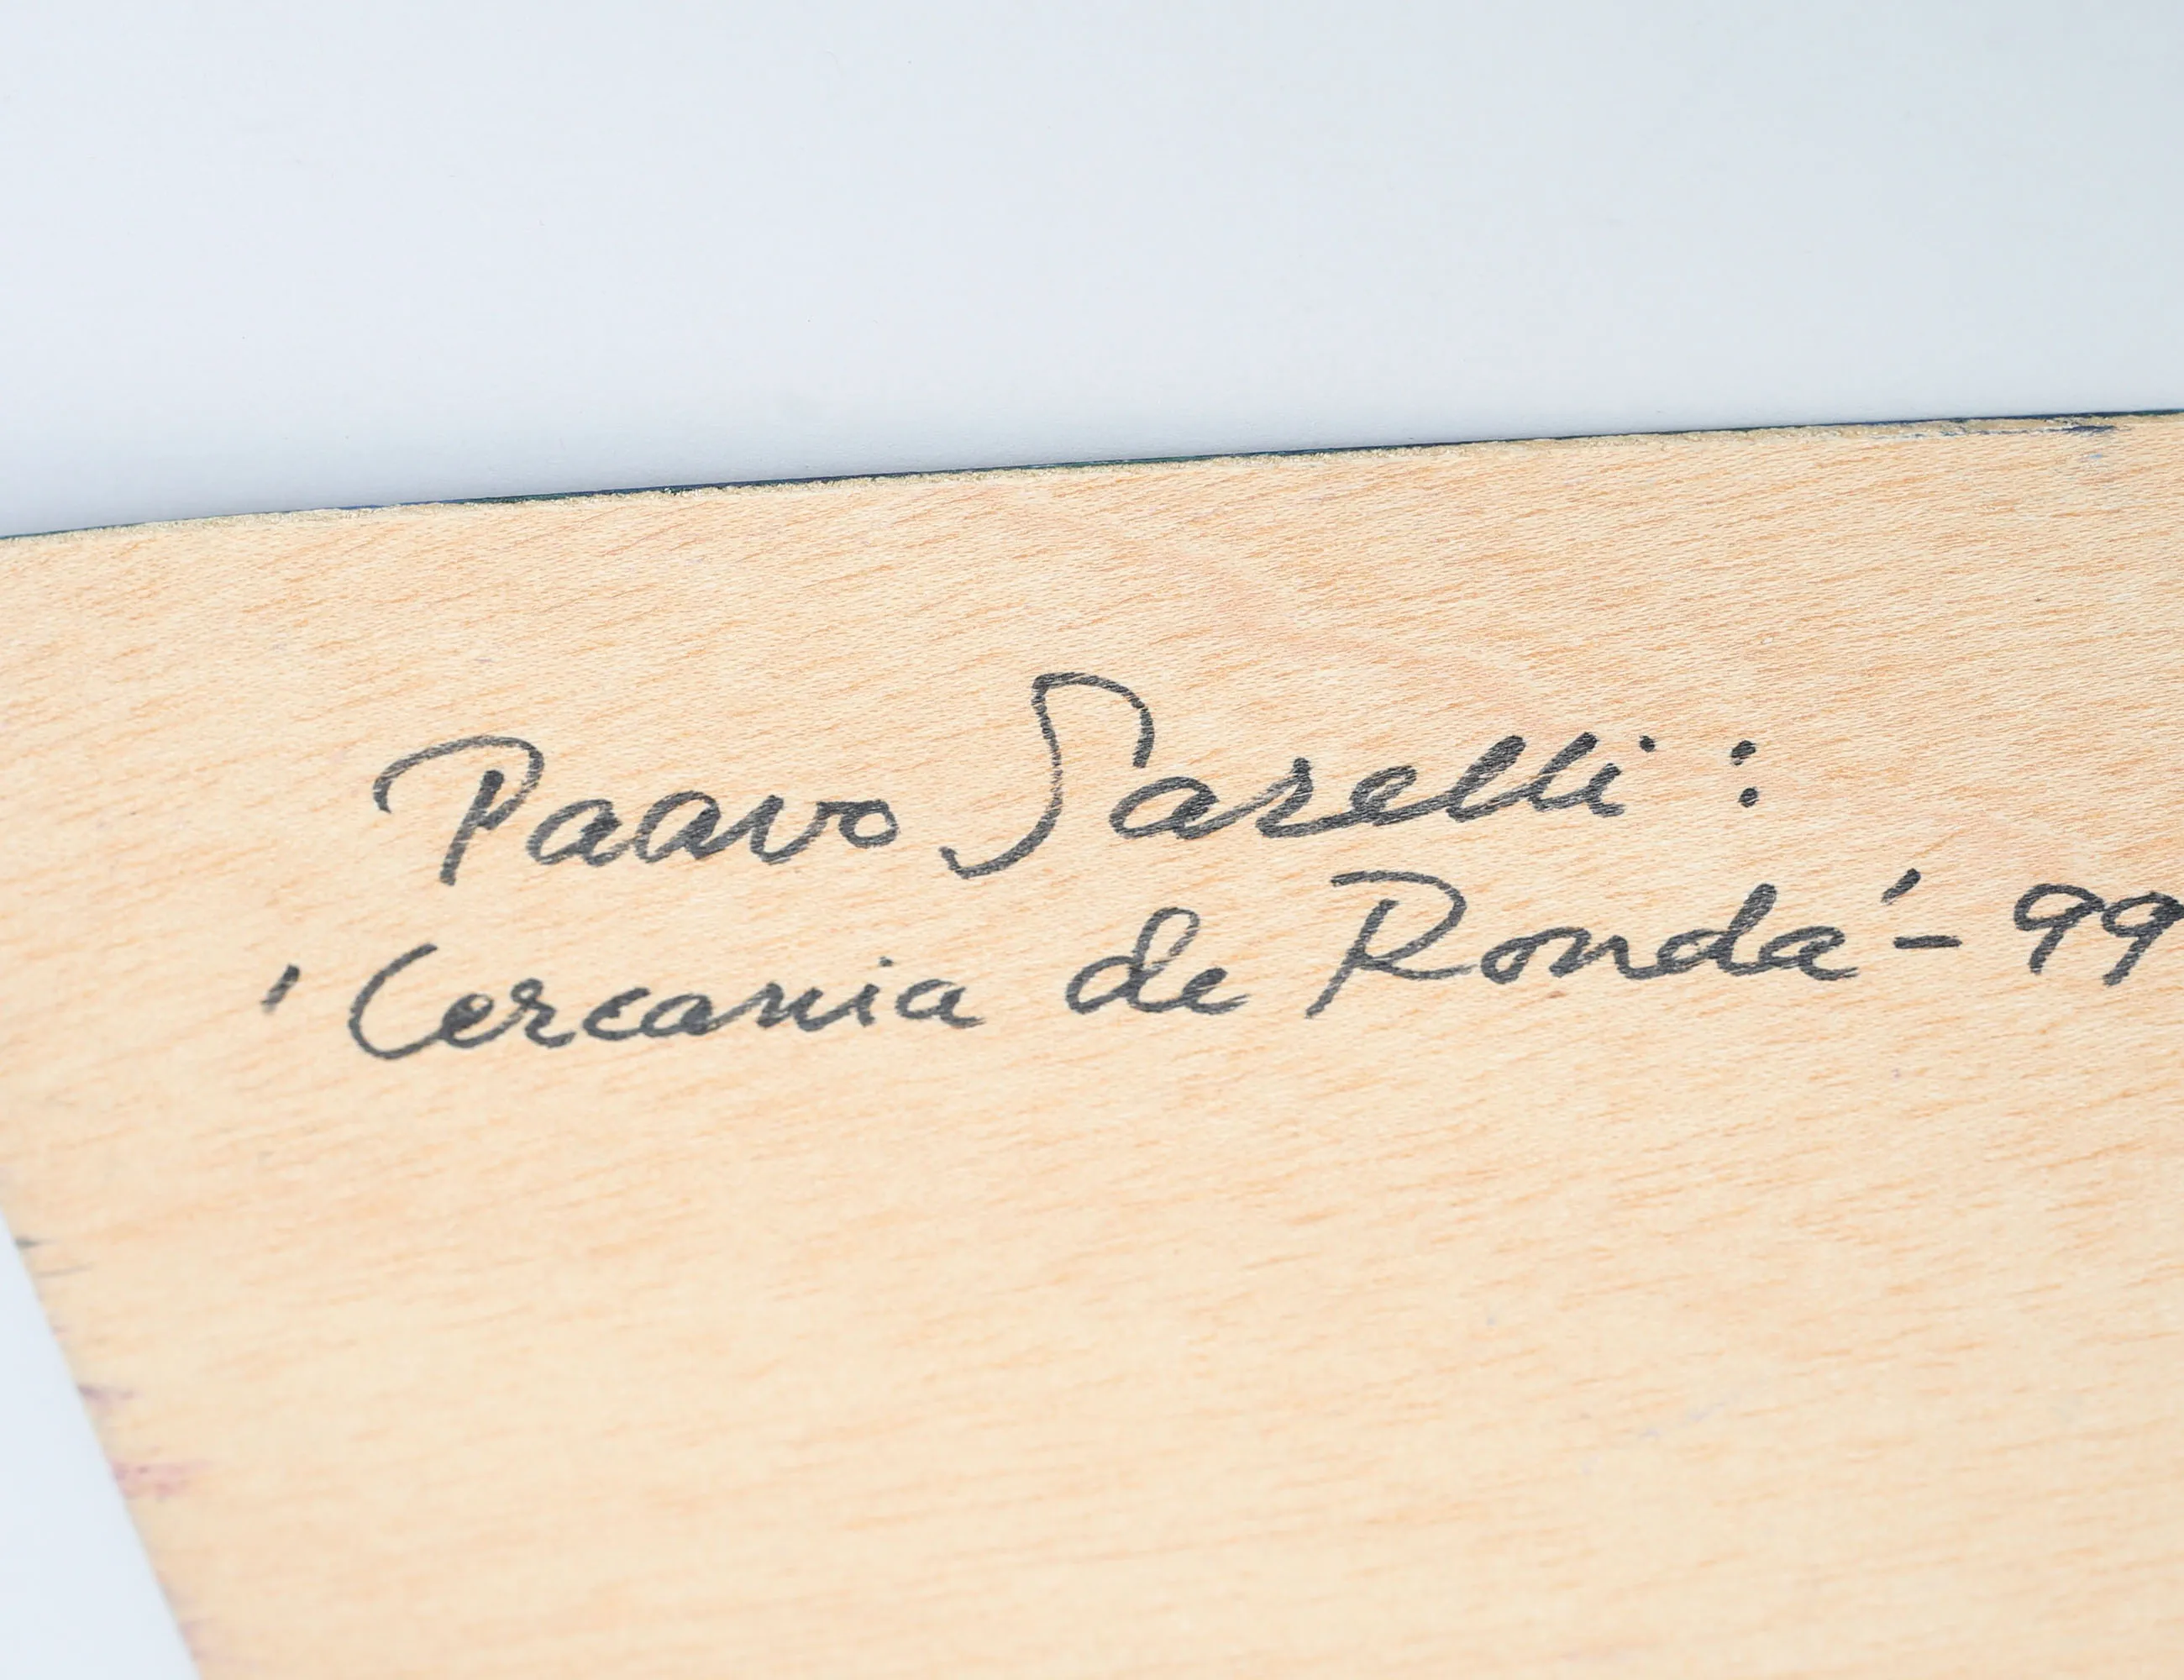 Paavo Sarelli :
'Cercania de Ronda' - 99